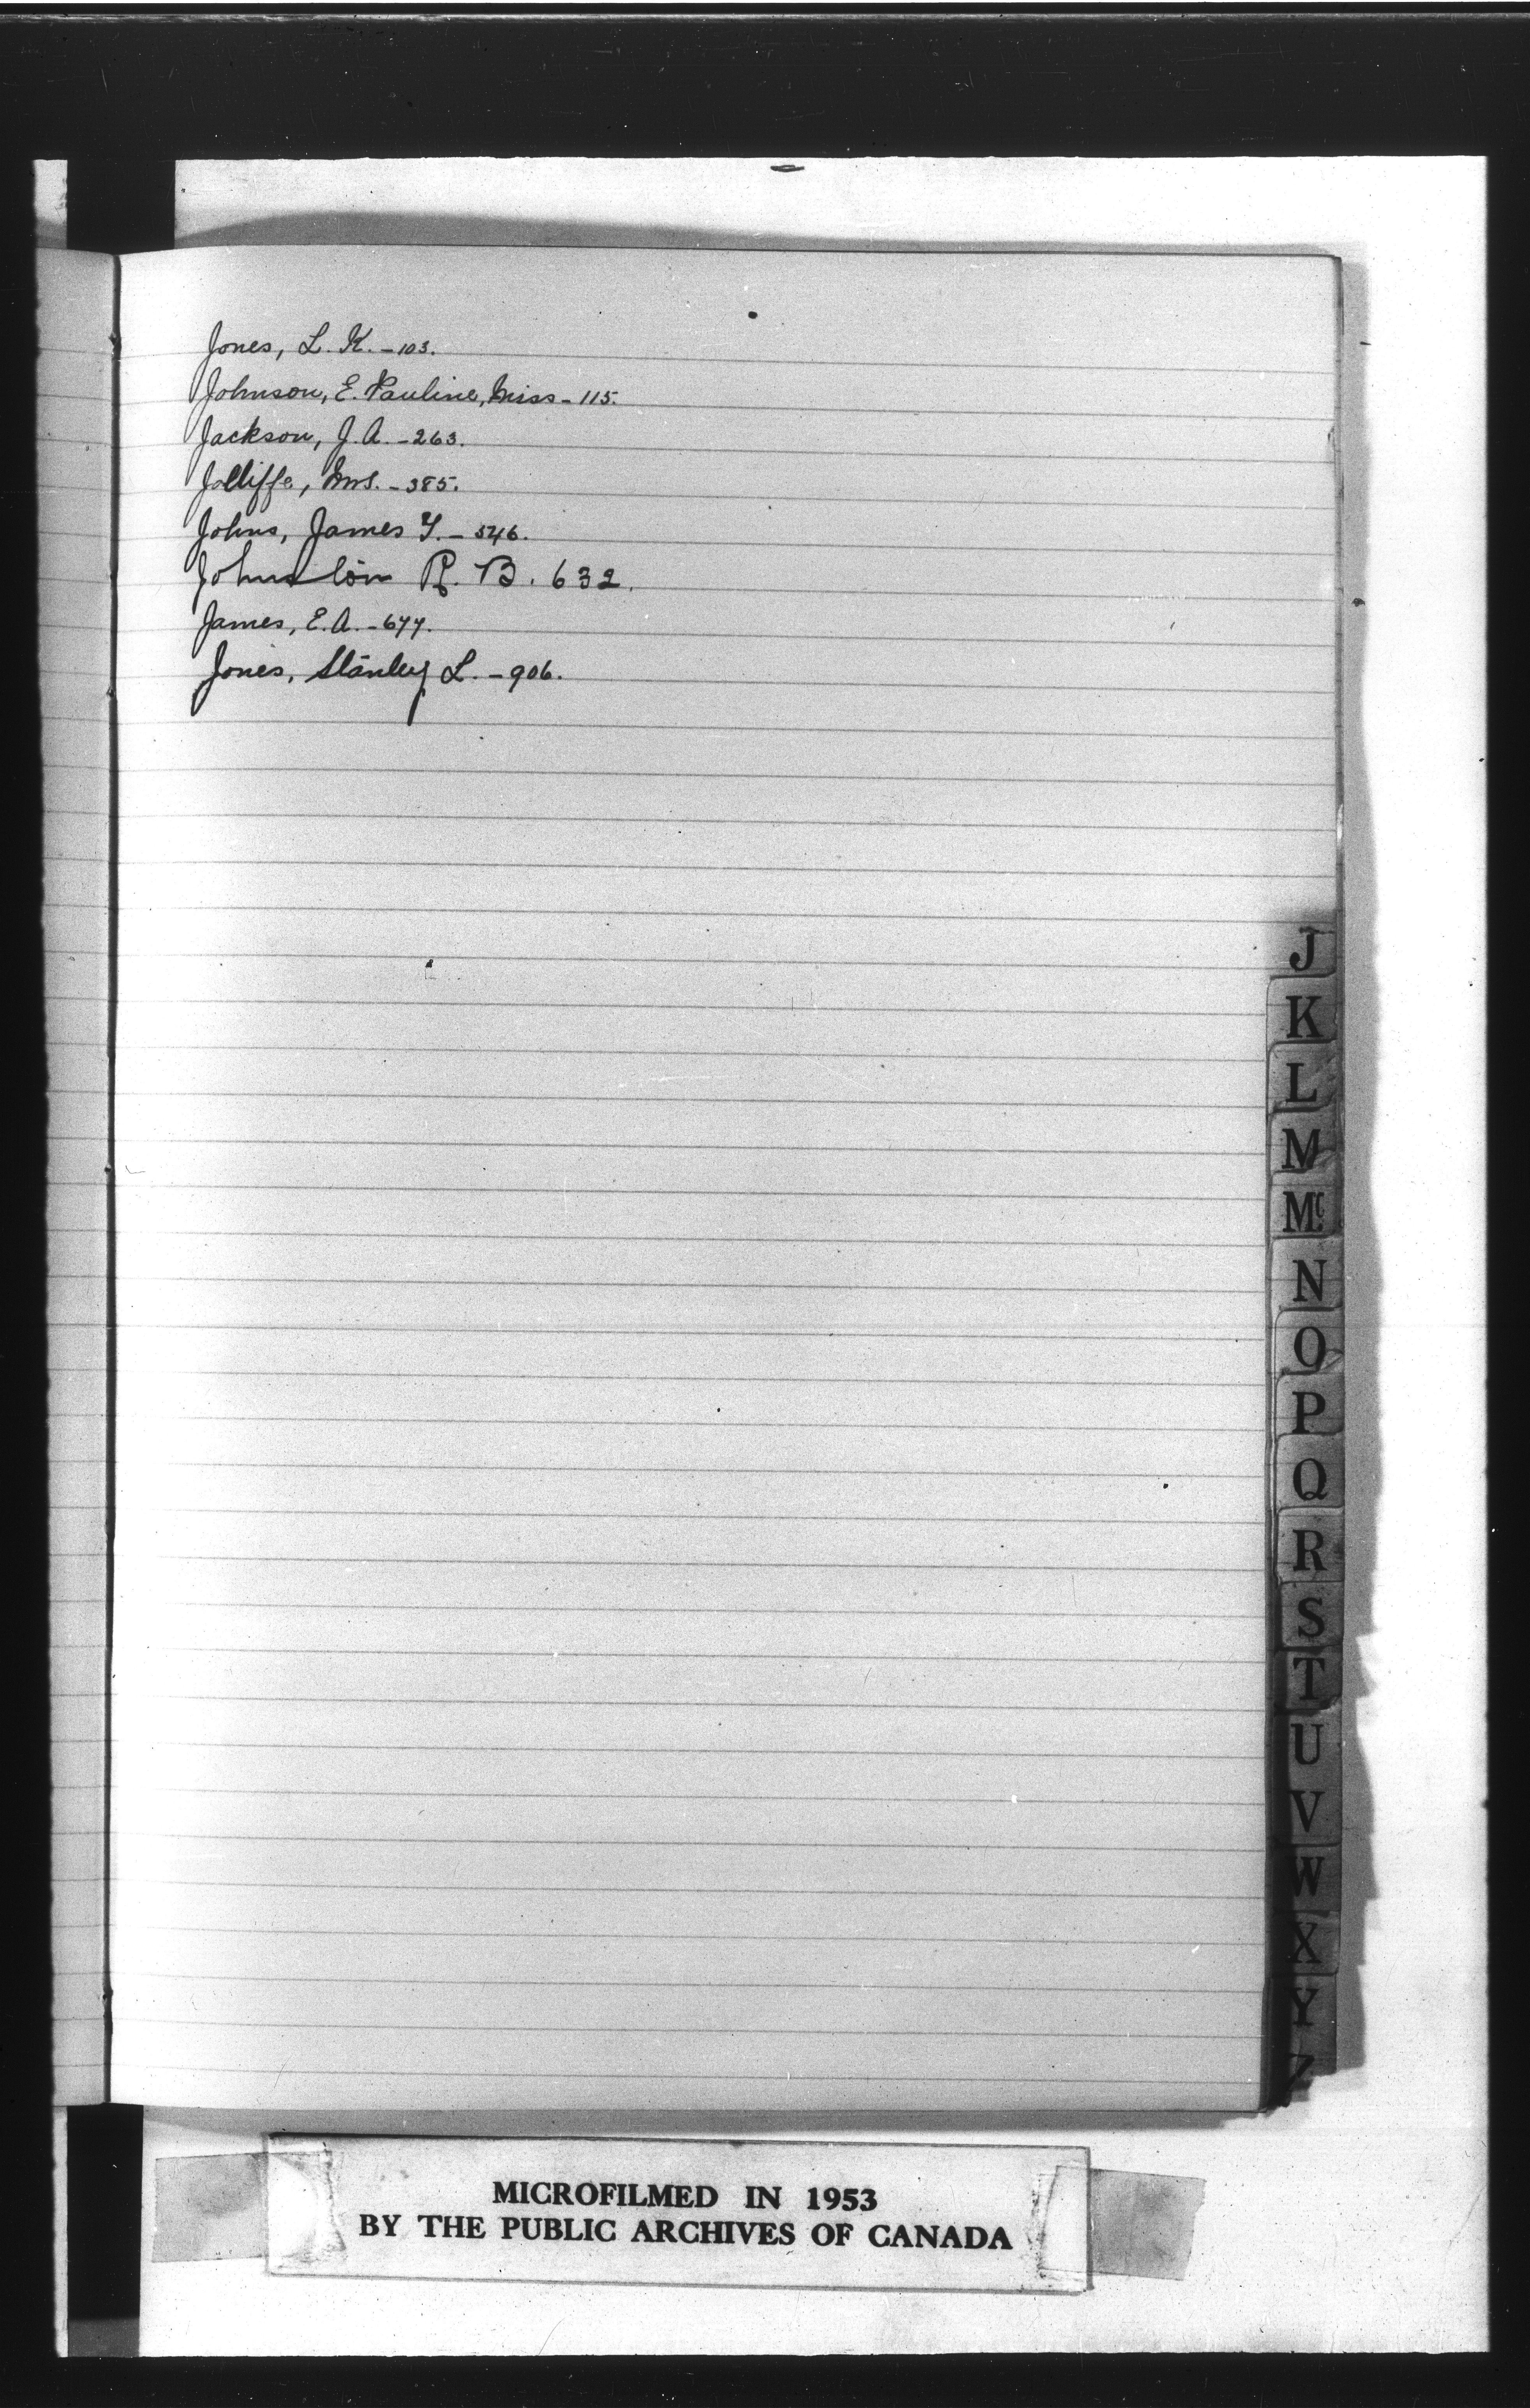 Jones, L. K. - 103.
Johnson, E. Pauline, Miss - 115.
Jackson, J. A. - 263.
Jolliffe, Mrs. - 385.
Johns, James Y. - 546.
Johnston R. B. 632.
James, E. A. - 677.
Jones, Stanley L. - 906.
J
K
L
M
Mc
N
O
P
Q
R
S
T
U
V
W
X
Y
Z
MICROFILMED IN 1953
BY THE PUBLIC ARCHIVES OF CANADA